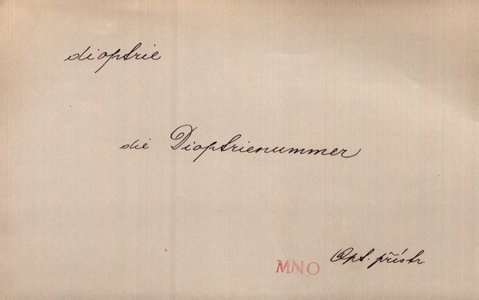 dioptrie
die Dioptrienummer
MNO Opt. přístr